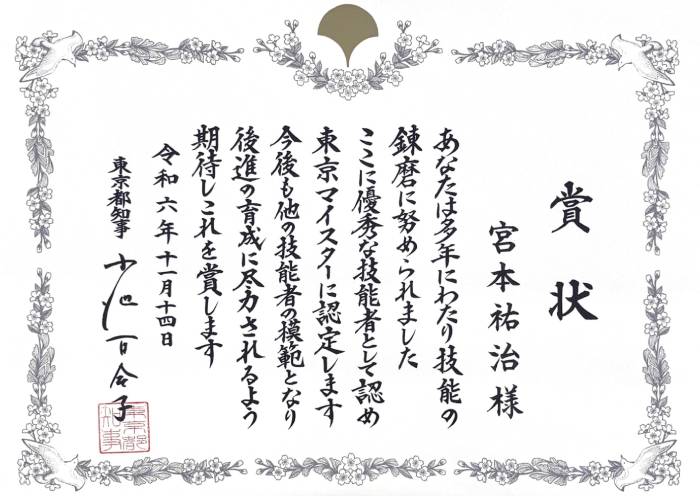 賞状
宮本祐治様
あなたは多年にわたり技能の
錬磨に努められました
ここに優秀な技能者として認め
東京マイスターに認定します
今後も他の技能者の模範となり
後進の育成に尽力されるよう
期待しこれを賞します
令和六年十一月十四日
東京都知事 小池百合子
東京都知事